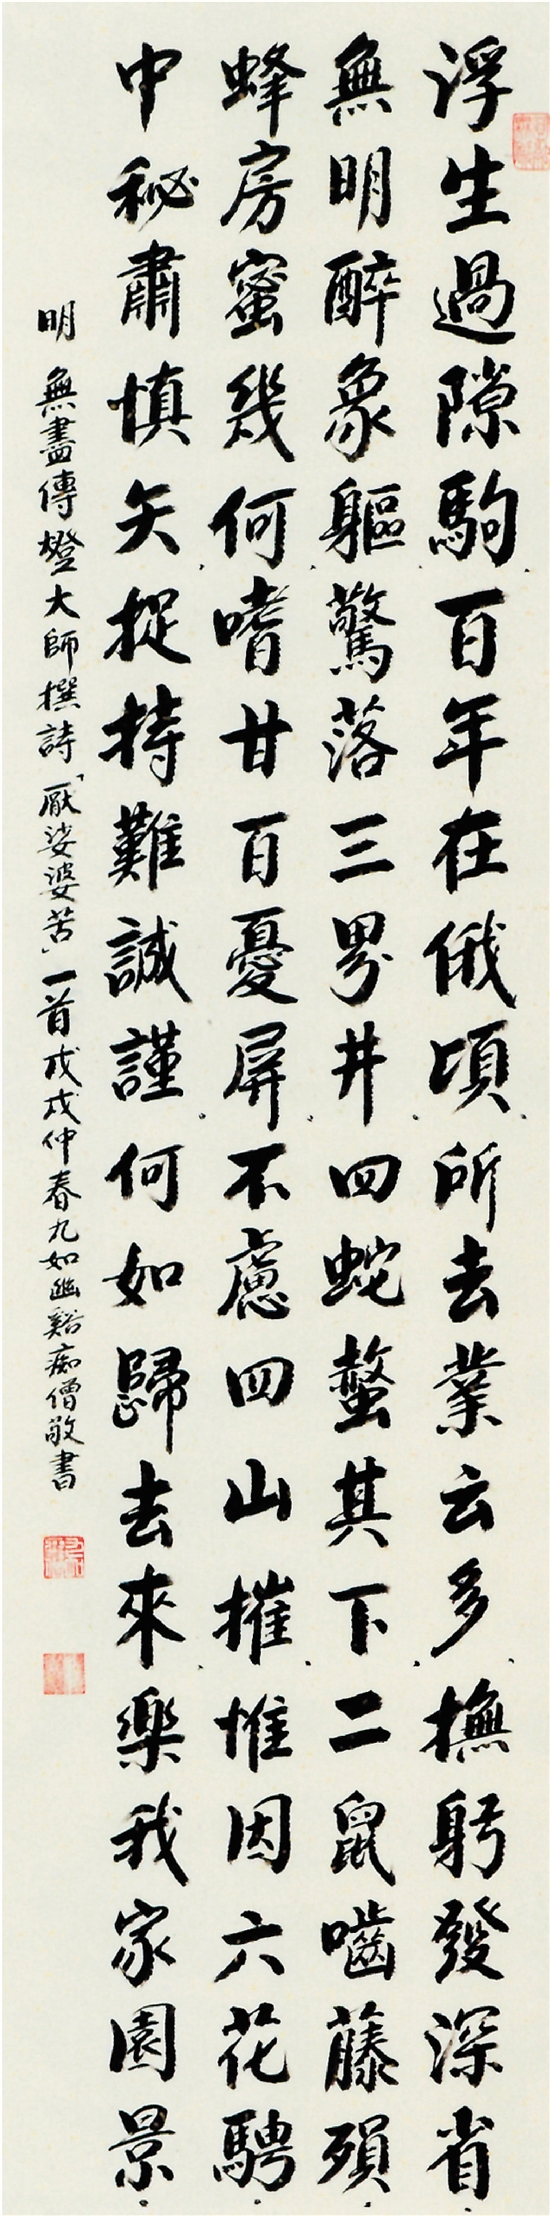 浮生過隙駒百年在俄頃所去業云多撫躬發深省
無明醉象軀驚落三界井四蛇螫其下二鼠嚙藤殞
蜂房蜜幾何嗜甘百憂屏不慮四山摧惟因六花騁
中秘肅慎矢捉持難誠謹何如歸去來樂我家園景
明 無盡傳橙大師撰詩「厭娑婆苦」一首戊戌仲春九如幽谿痴僧敬書